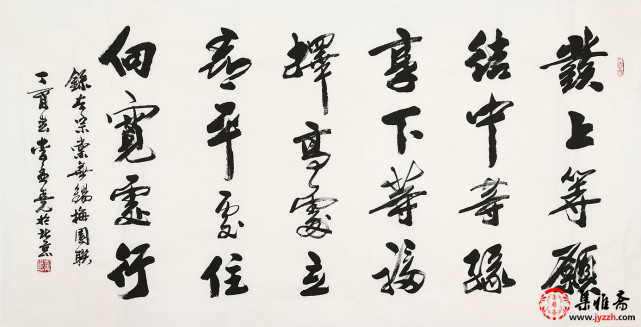 發上等願
結中等緣
享下等福
擇高處立
尋平處住
向寬處行
錄左宗棠無錫梅園聯
丁酉 於北京
集雅斋
www.jyzzh.com